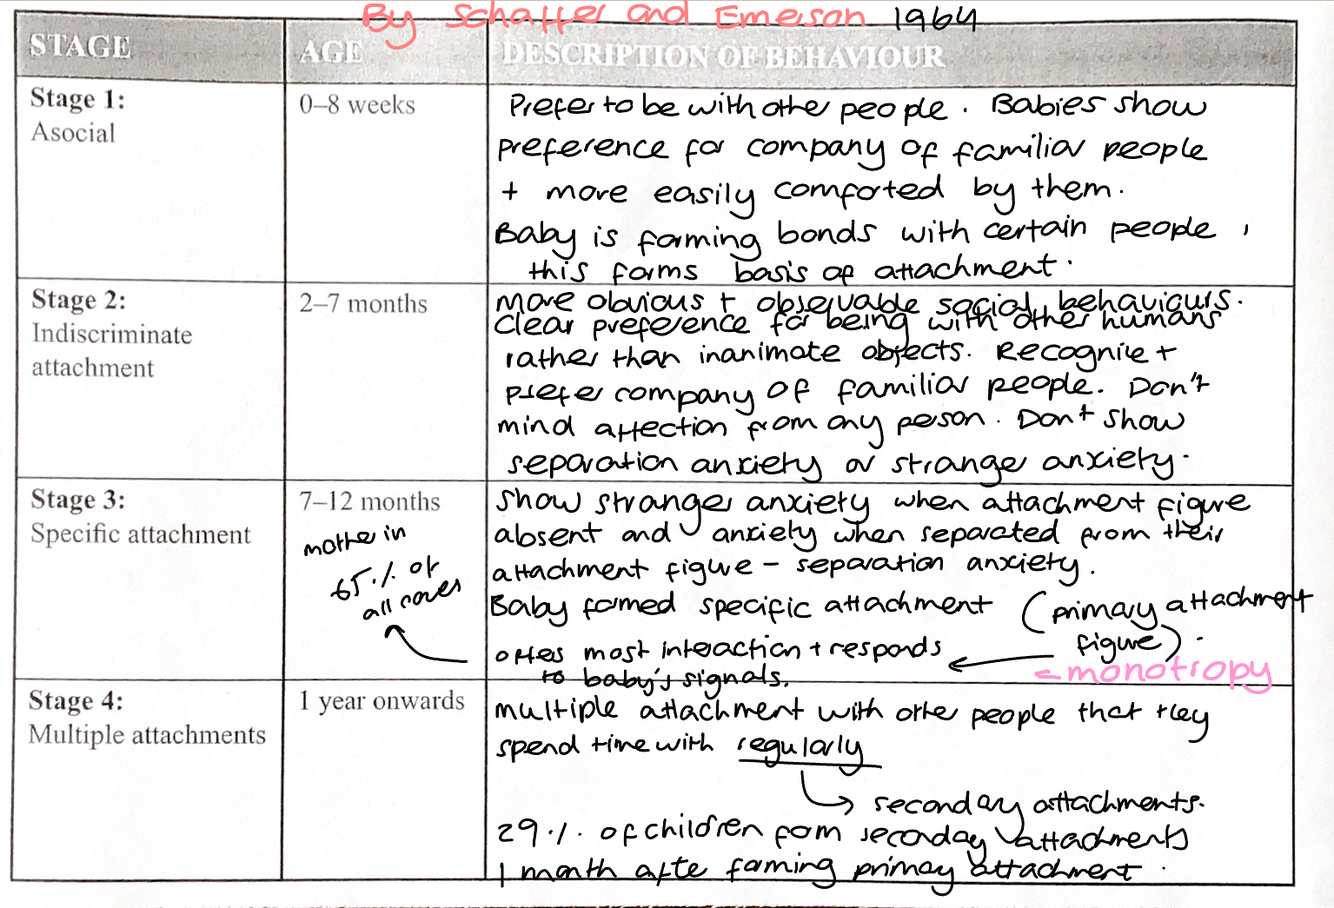 By Schaffer and Emerson 1964
STAGE
AGE
DESCRIPTION OF BEHAVIOUR
Stage 1:
Asocial
0–8 weeks
Prefer to be with other people. Babies show
preference for company of familiar people
+ more easily comforted by them.
Baby is forming bonds with certain people,
this forms basis of attachment.
Stage 2:
Indiscriminate
attachment
2–7 months
More obvious + observable social behaviours.
Clear preference for being with other humans
rather than inanimate objects. Recognise +
prefer company of familiar people. Don't
mind affection from any person. Don't show
separation anxiety or strange anxiety.
Stage 3:
Specific attachment
7–12 months
mother in
65% of
all cases
Show stranger anxiety when attachment figure
absent and anxiety when separated from their
attachment figure – separation anxiety.
Baby formed specific attachment (primary attachment
figure).
offers most interaction + responds
to baby's signals.
← monotropy
Stage 4:
Multiple attachments
1 year onwards
multiple attachment with other people that they
spend time with regularly
→ secondary attachments.
29% of children form secondary attachments
1 month after forming primary attachment.